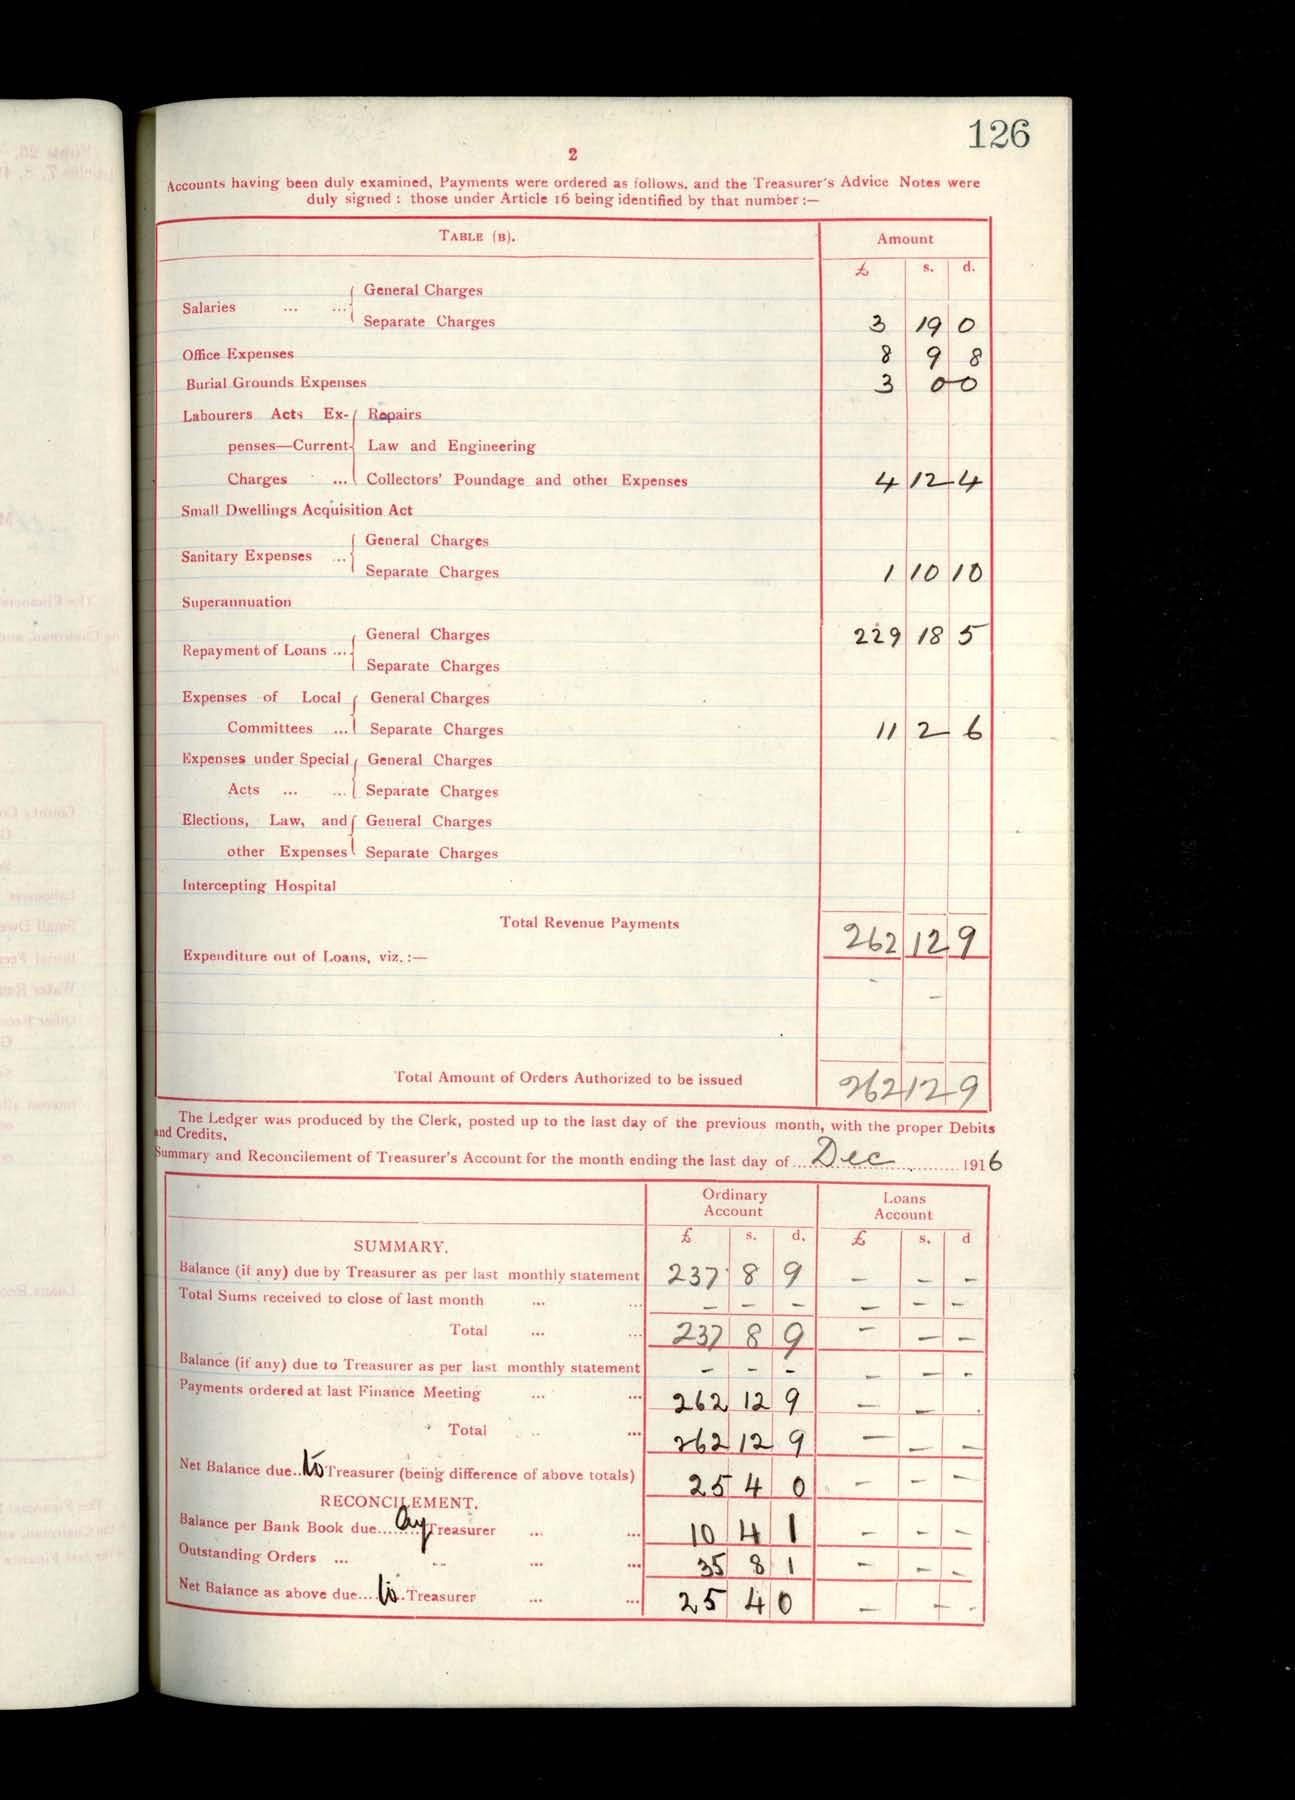 126
2
Accounts having been duly examined, Payments were ordered as follows, and the Treasurer's Advice Notes were
duly signed: those under Article 16 being identified by that number:—
TABLE (B). Amount
£ s. d.
General Charges
Salaries ... ...
Separate Charges 3 19 0
Office Expenses 8 9 8
Burial Grounds Expenses 3 0 0
Labourers Acts Ex- Repairs
penses—Current Law and Engineering
Charges ... Collectors' Poundage and other Expenses 4 12 4
Small Dwellings Acquisition Act
General Charges
Sanitary Expenses ...
Separate Charges 1 10 10
Superannuation
General Charges 229 18 5
Repayment of Loans ...
Separate Charges
Expenses of Local General Charges
Committees ... Separate Charges 11 2 6
Expenses under Special General Charges
Acts ... ... Separate Charges
Elections, Law, and General Charges
other Expenses Separate Charges
Intercepting Hospital
Total Revenue Payments 262 12 9
Expenditure out of Loans, viz.:—
- -
Total Amount of Orders Authorized to be issued 262 12 9
The Ledger was produced by the Clerk, posted up to the last day of the previous month, with the proper Debits
and Credits.
Summary and Reconcilement of Treasurer's Account for the month ending the last day of ... Dec ... 1916
Ordinary Account Loans Account
£ s. d. £ s. d
SUMMARY.
Balance (if any) due by Treasurer as per last monthly statement 237 8 9 - - -
Total Sums received to close of last month ... ... - - - - - -
Total ... ... 237 8 9 - - -
Balance (if any) due to Treasurer as per last monthly statement - - - - - -
Payments ordered at last Finance Meeting ... ... 262 12 9 - - -
Total ... ... 262 12 9 - - -
Net Balance due..to Treasurer (being difference of above totals) 25 4 0 - - -
RECONCILEMENT.
Balance per Bank Book due...by Treasurer ... ... 10 4 1 - - -
Outstanding Orders ... ... ... ... 35 8 1 - - -
Net Balance as above due...to..Treasurer ... ... 25 4 0 - - -